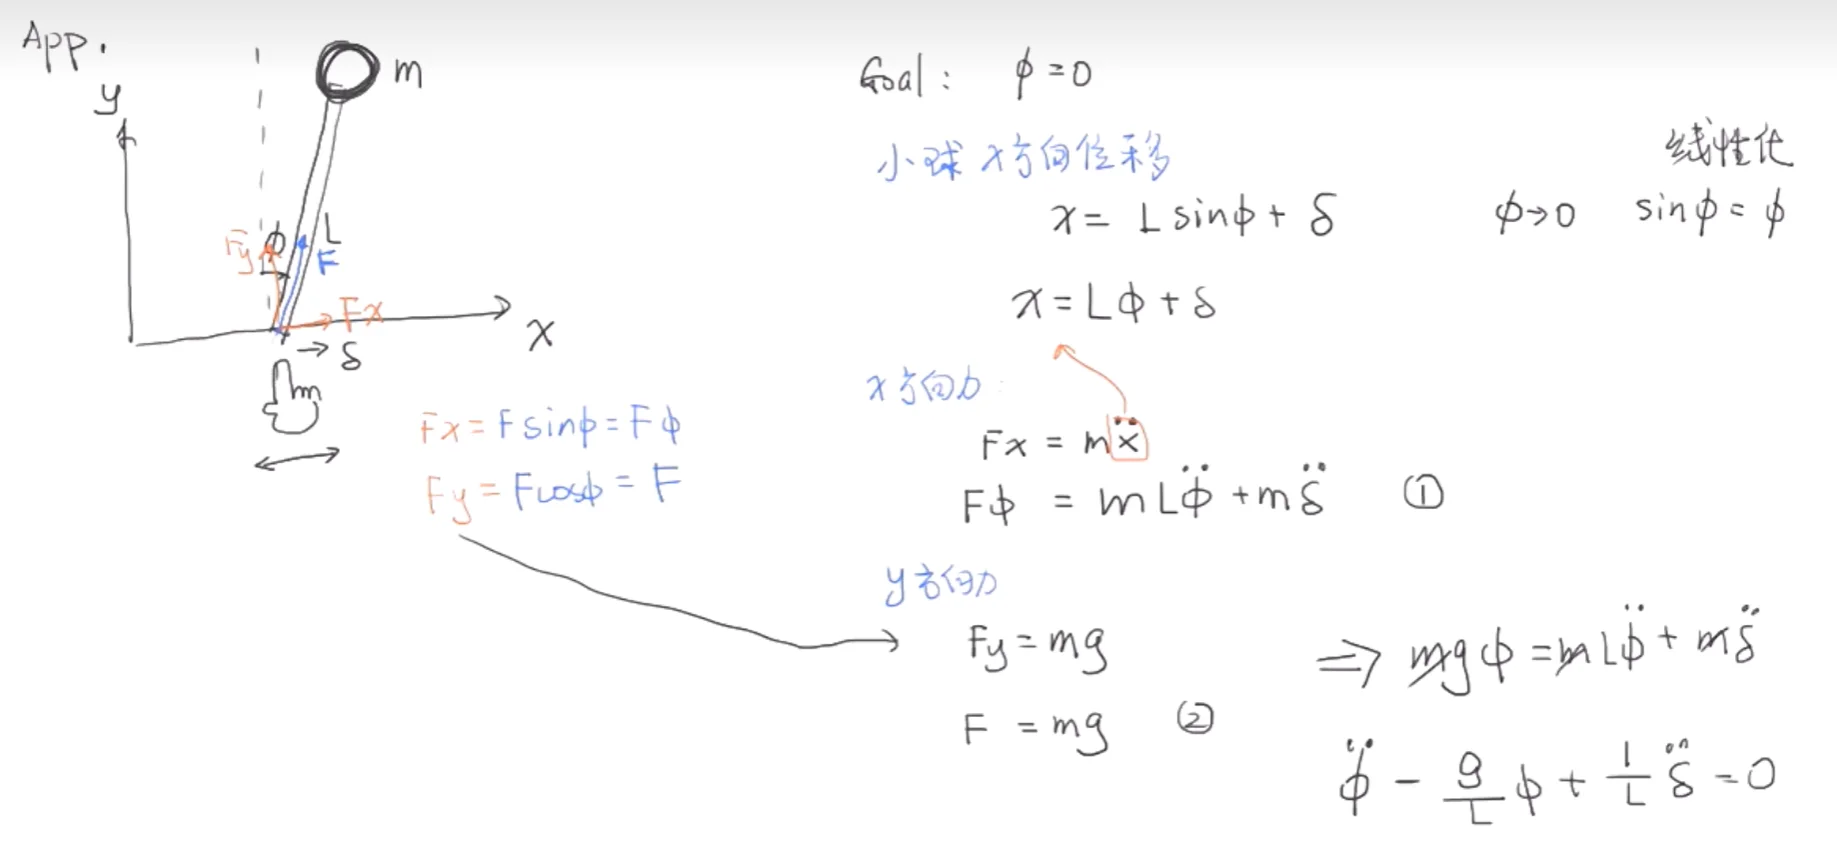 App.
y
m
φ
L
Fy
F
Fx
x
δ
Fx = F sinφ = Fφ
Fy = F cosφ = F
Goal: φ = 0
小球 x方向位移
x = L sinφ + δ
线性化
φ→0 sinφ = φ
x = Lφ + δ
x方向力:
Fx = mẍ
Fφ = mLφ̈ + mδ̈ ①
y方向力
Fy = mg
F = mg ②
⇒ mgφ = mLφ̈ + mδ̈
φ̈ - g/L φ + 1/L δ̈ = 0